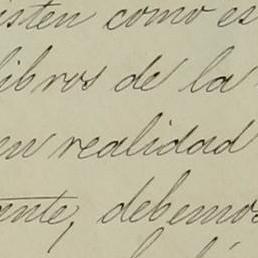 isten como es
libros de la
en realidad
ante, debemos